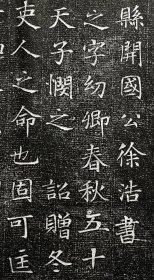 縣開國公徐浩書
之字幼卿春秋五十
天子憫之 詔贈冬
吏人之命也固可匡